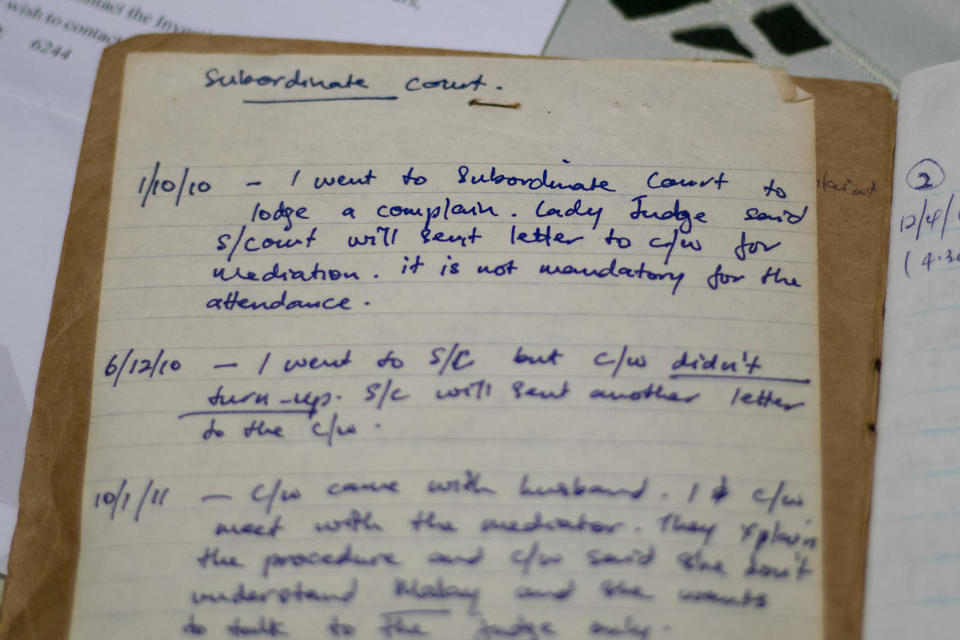 contact the Investi
wish to contact
6244
Subordinate Court.
1/10/10 - I went to Subordinate Court to
lodge a complain. Lady Judge said
S/Court will sent letter to c/w for
mediation. it is not mandatory for the
attendance.
6/12/10 - I went to S/C but c/w didn't
turn-up. S/C will sent another letter
to the c/w.
10/1/11 - c/w came with husband. I & c/w
meet with the mediator. They xplain
the procedure and c/w said she don't
understand Malay and she wants
to talk to the judge only.
2
12/4/
(4.30